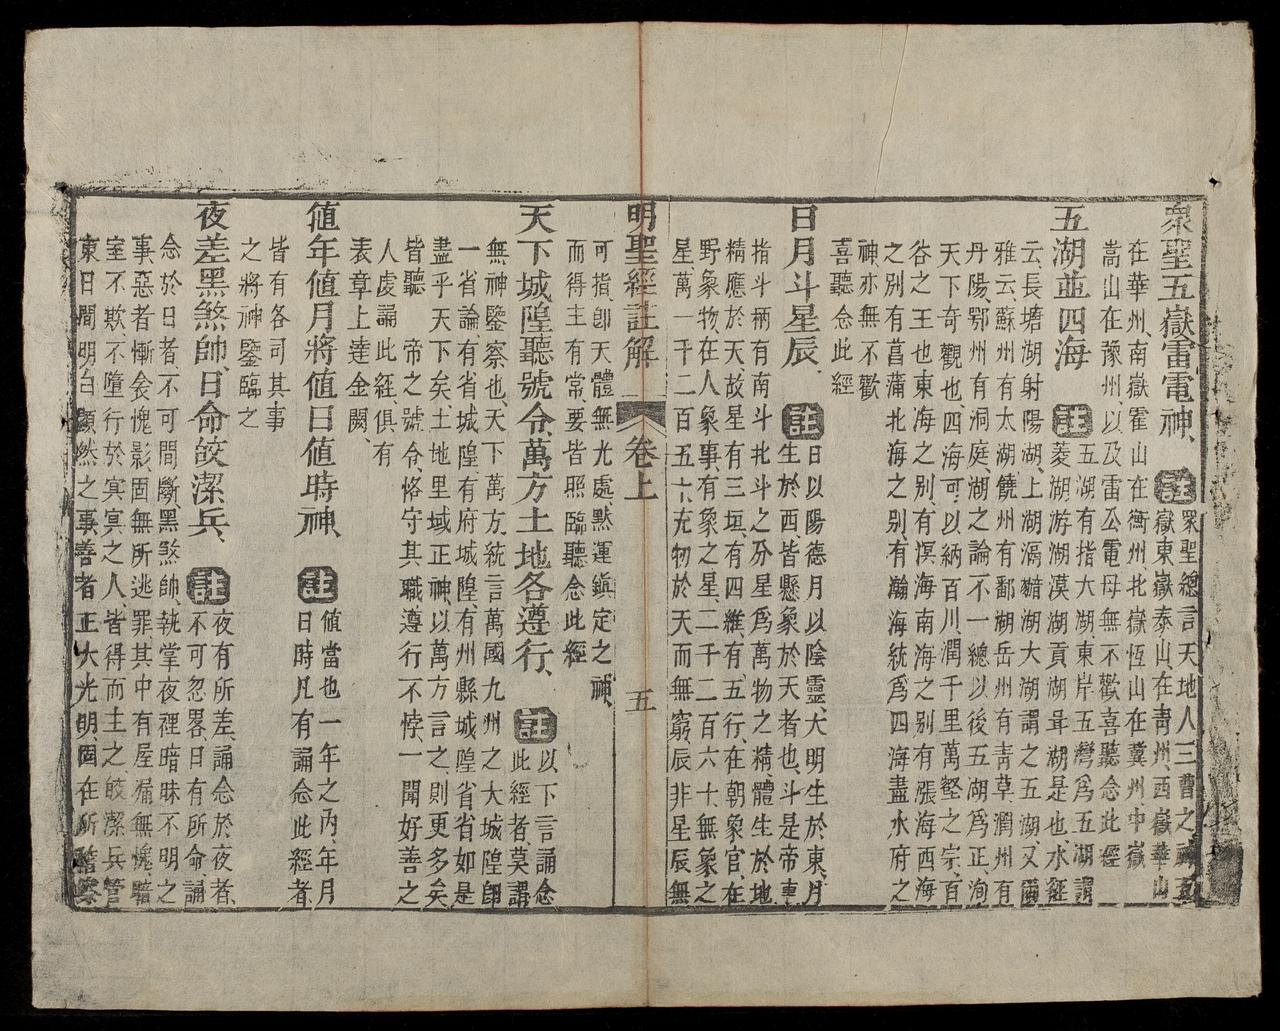 眾聖五嶽雷電神、註眾聖總言天地人三曹之神、五
嶽東嶽泰山、在青州、西嶽華山
在華州、南嶽霍山在衡州北嶽恆山在冀州中嶽
嵩山在豫州以及雷公電母無不歡喜聽念此經
五湖並四海註五湖有指大湖東岸五灣爲五湖謂
菱湖游湖漠湖貢湖胥湖是也水經
云、長塘湖射陽湖、上湖滆湖大湖謂之五湖、又
雅云、蘇州有太湖、饒州有鄱湖岳州有青草、潤州有
丹陽、鄂州有洞庭、湖之論不一總以後五湖爲正、洵
天下奇觀也四海可以納百川潤千里萬壑之宗、百
谷之王也東海之別、有溟海南海之別有漲海西海
之別有菖蒲北海之別、有瀚海統爲四海盡水府之
神、亦無不歡
喜聽念此經
日月斗星辰、註日以陽德月以陰靈、大明生於東、月
生於西、皆懸象於天者也、斗是帝車
指斗柄有南斗北斗之分星爲萬物之精、體生於地
精應於天、故星有三垣、有四維有五行、在朝象官、在
野象物、在人象事、有象之星、二千二百六十、無象之
星、萬一千二百五十、充物於天而無窮辰非星辰無
可指、卽天體無光處默運鎭定之神、
而得主有常、要皆照臨聽念此經
明聖經註解 卷上 五
天下城隍聽號令、萬方土地各遵行、註以下言誦念
此經者、莫謂
無神鑒察也、天下萬方、統言萬國九州之大城隍卽
一省論、有省城隍有府城隍有州縣城隍省省如是
盡乎天下矣土地里域正神、以萬方言之、則更多矣
皆聽 帝之號令、恪守其職遵行不悖、一聞好善之
人虔誦此經、俱有
表章上達金闕、
値年値月將値日値時神、註値當也一年之內、年月
日時凡有誦念此經者、
皆有各司其事
之將神鑒臨之
夜差黑煞帥、日命皎潔兵、註夜有所差、誦念於夜者、
不可忽畧、日有所命、誦
念於日者、不可間斷、黑煞帥、執掌夜裡暗昧不明之
事、惡者慚衾愧影、固無所逃罪其中有屋漏無愧、暗
室不欺、不墮行於冥冥之人、皆得而主之、皎潔兵管
束日間、明白顯然之事、善者正大光明、固在所鑒察